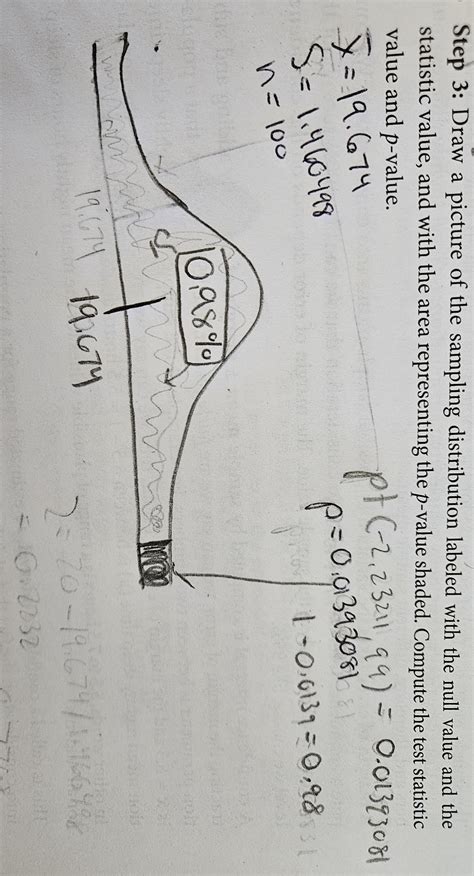 Step 3: Draw a picture of the sampling distribution labeled with the null value and the
statistic value, and with the area representing the p-value shaded. Compute the test statistic
value and p-value.
x̄ = 19.674
S = 1.460498
n = 100
pt(-2.23211, 99) = 0.01393081
p = 0.01393081
1 - 0.0139 = 0.98
0.98%
19.674
19.674
z = 20 - 19.674 / 1.460498
= 0.2232